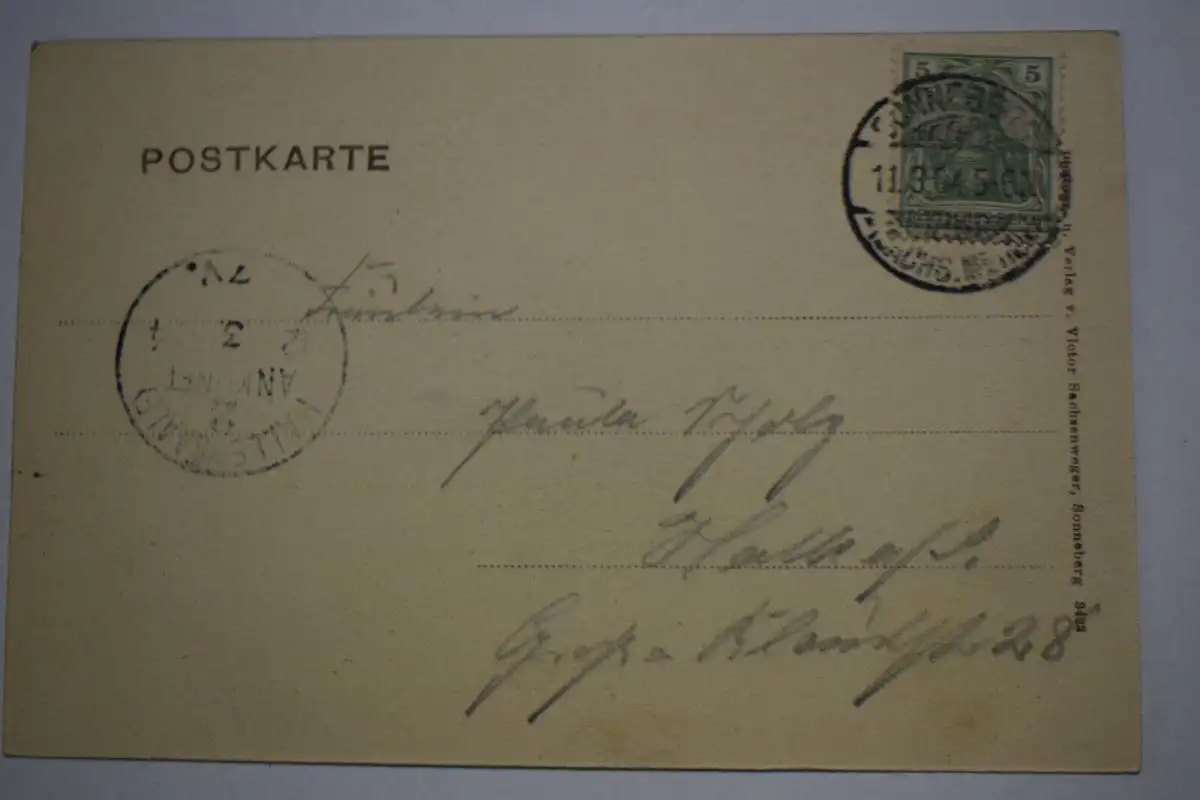 POSTKARTE
5 5
SONNEBERG
11.3.04.5-6N.
(SACHS. MEIN.)
7V.
12 3 4
ANKUNFT
HALLE
Fräulein
Paula Scholz
Halle a/S.
Groß-Klausstr 28
Verlag v. Victor Sachsenweger, Sonneberg